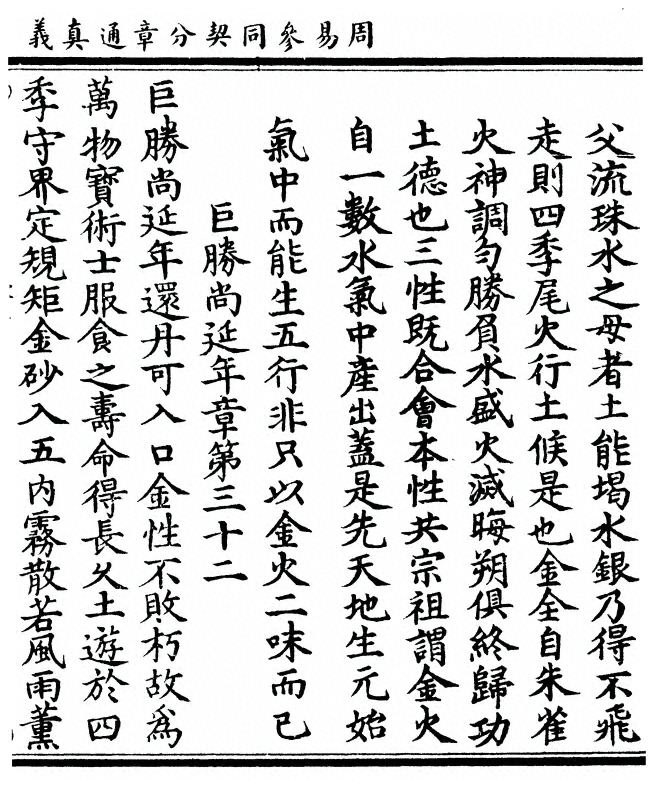 周易參同契分章通真義
父流珠水之母者土能堨水銀乃得不飛
走則四季尾火行土候是也金全自朱雀
火神調勻勝負水盛火滅晦朔俱終歸功
土德也三性既合會本性共宗祖謂金火
自一數水氣中產出蓋是先天地生元始
氣中而能生五行非只以金火二味而已
巨勝尚延年章第三十二
巨勝尚延年還丹可入口金性不敗朽故為
萬物寶術士服食之壽命得長久土遊於四
季守界定規矩金砂入五內霧散若風雨薰